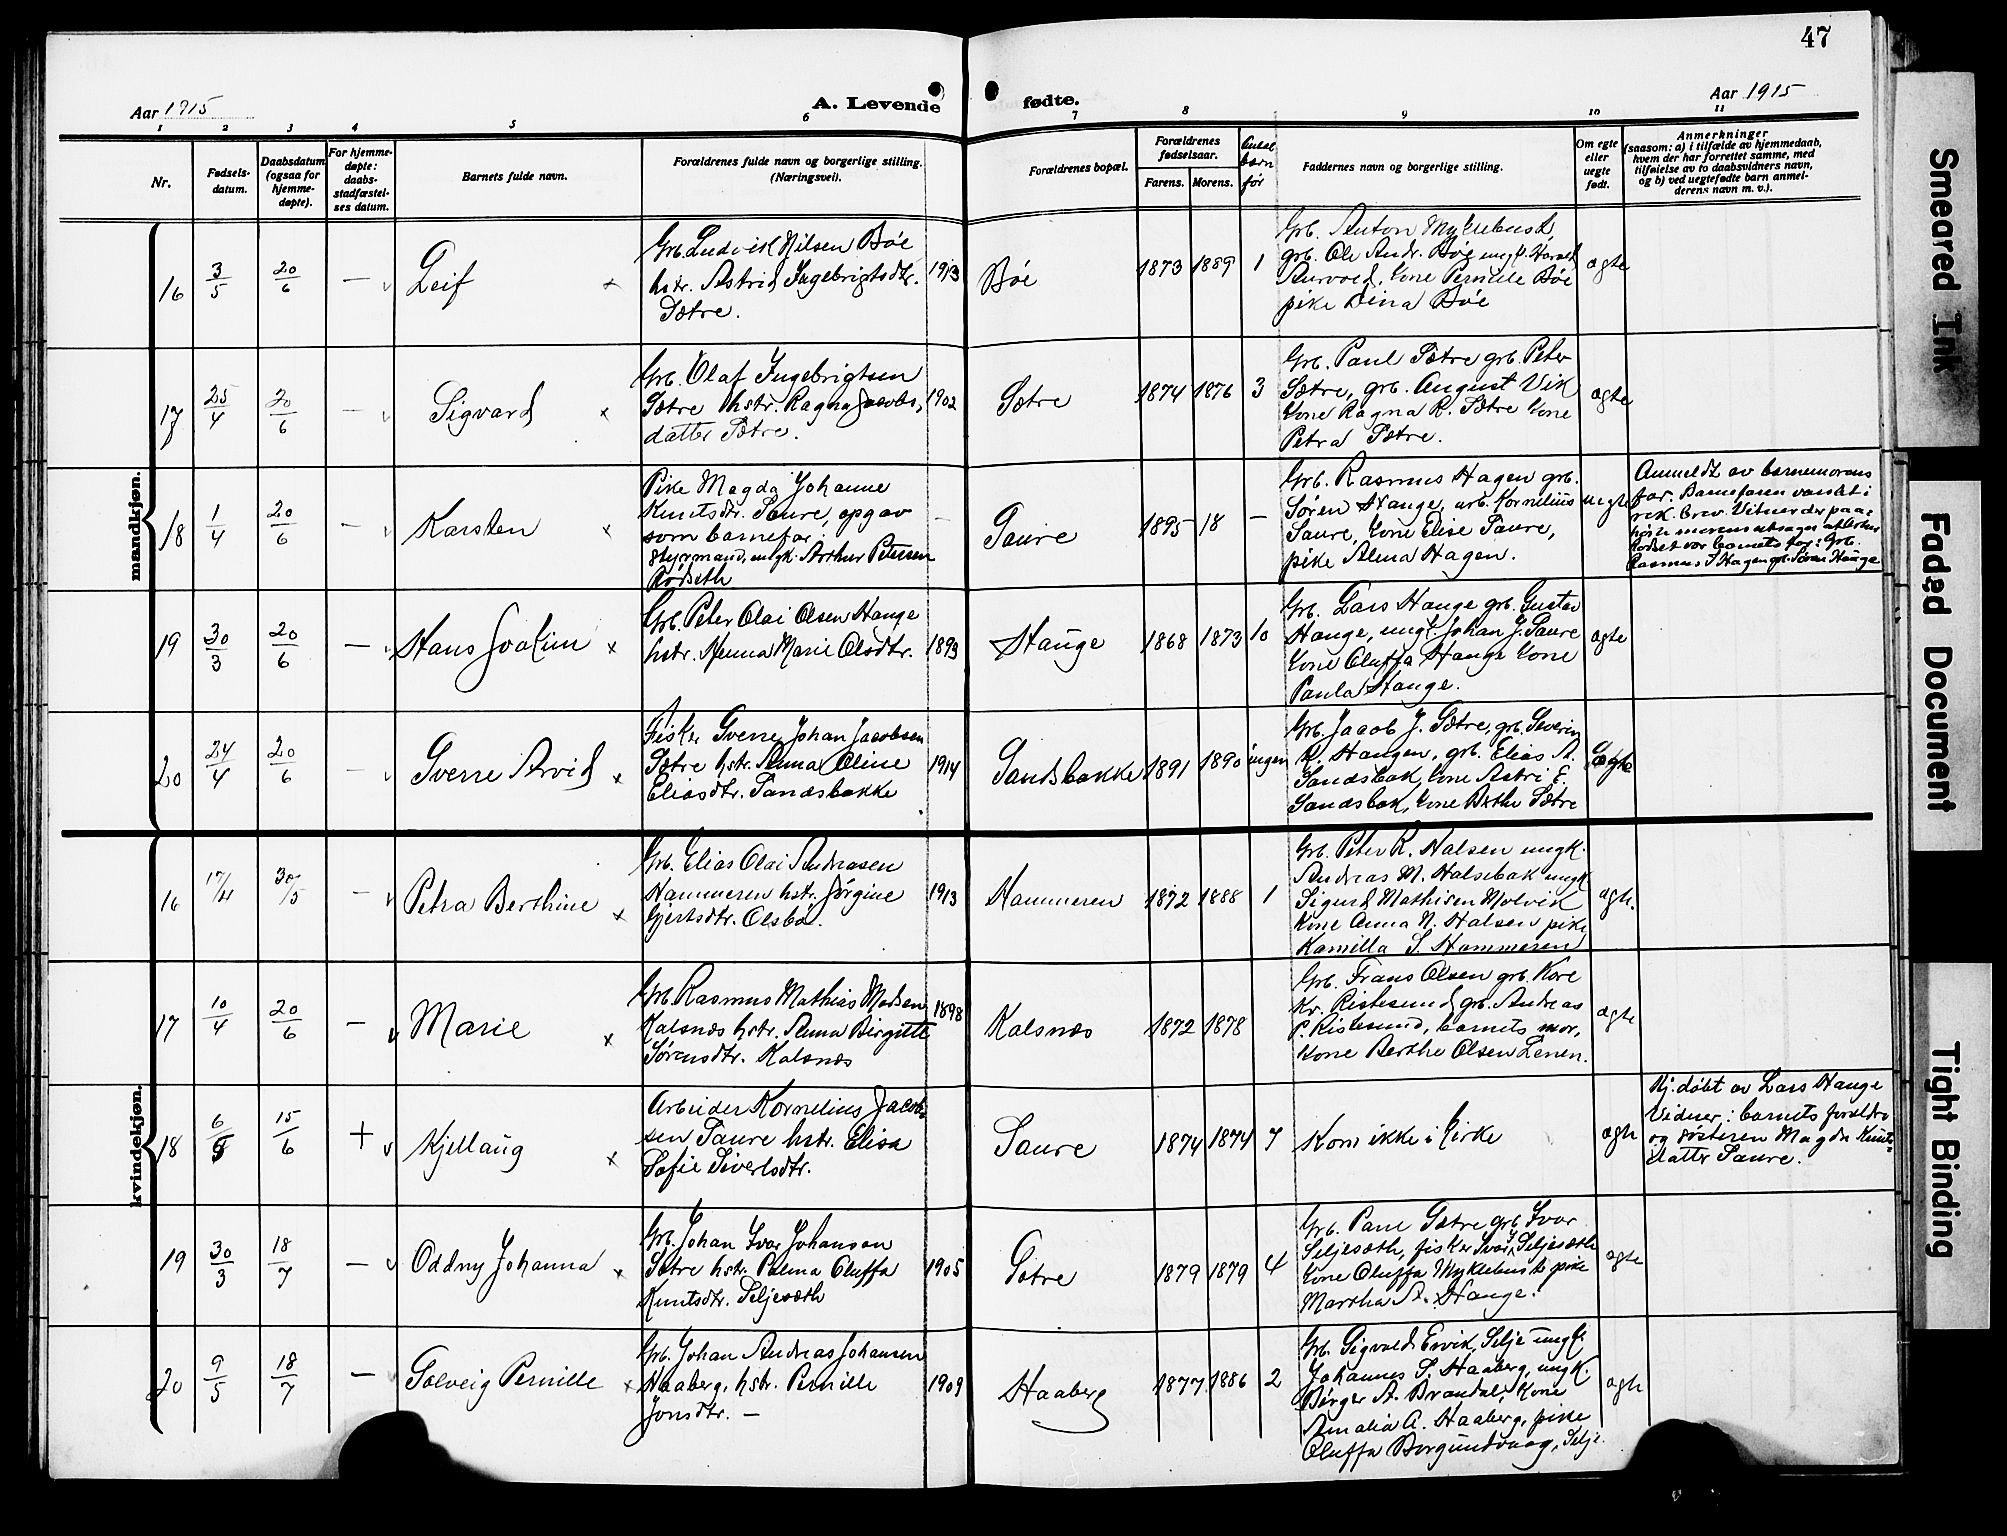 47
Aar 1915
A. Levende
fødte.
Aar 1915
1 2 3 4 5 6 7 8 9 10 11
Nr.
Fødsels-
datum.
Daabsdatum
(ogsaa for
hjemme-
døpte).
For hjemme-
døpte:
daabs-
stadfæstel-
ses datum.
Barnets fulde navn.
Forældrenes fulde navn og borgerlige stilling.
(Næringsvei).
Forældrenes bopæl.
Forældrenes
fødselsaar.
Farens.
Morens.
Antal
barn
før
Faddernes navn og borgerlige stilling.
Om egte
eller
uegte
født.
Anmerkninger
(saasom: a) i tilfælde av hjemmedaab,
hvem der har forrettet samme, med
tilføielse av to daabsvidners navn,
og b) ved uegtefødte barn anmel-
derens navn m. v.).
mandkjøn.
16 3/5 20/6 — Leif ×
Grb. Ludvik Nilsen Bøe
hstr. Astrid Ingebrigtsdtr.
Sætre.
1913 Bøe 1873 1889 1
Grb. Anton Myklebust
grb. Ole Andr. Bøe ungk. Harald
Aurvoll, kone Pernille Bøe
pike Dina Bøe
ægte
17 25/4 20/6 — Sigvard ×
Grb. Olaf Ingebrigtsen
Sætre hstr. Ragna Jacobs,
datter Sætre.
1902 Sætre 1874 1876 3
Grb. Paul Sætre grb. Peter
Sætre, grb. August Vik
kone Ragna R. Sætre kone
Petra Sætre.
ægte
18 1/4 20/6 — Karsten ×
Pike Magda Johanne
Knutsdtr. Saure, opgav
som barnefar:
Styrmand, ungk. Arthur Petersen
Rødseth
— Saure 1895 18 —
Grb. Rasmus Hagen grb.
Søren Hauge, arb. Kornelius
Saure, kone Elise Saure,
pike Alma Hagen.
uegte
Anmeldt av barnemorens
far. Barnefaren varslet i
rek. brev. Vitner der paa-
hørte morens utsagn at Arthur
Rødset var barnets far: Grb.
Rasmus S Hagen grb. Søren Hauge
19 30/3 20/6 — Hans Joakim ×
Grb. Peter Olai Olsen Hauge
hstr. Anna Marie Olsdtr.
1893 Hauge 1868 1873 10
Grb. Lars Hauge grb. Gustav
Hauge, ungk. Johan J. Saure
kone Oluffa Hauge kone
Paula Hauge.
ægte
20 24/4 20/6 — Sverre Arvid ×
Fisker Sverre Johan Jacobsen
Sætre hstr. Anna Oline
Eliasdtr. Sandsbakke
1914 Sandsbakke 1891 1890 ingen
Grb. Jacob J. Sætre, grb. Severin
R. Haugen, grb. Elias A.
Sandsbak, kone Astri E.
Sandsbak, kone Berthe Sætre
ægte
kvindekjøn.
16 17/4 30/5 — Petra Berthine ×
Grb. Elias Olai Andreasen
Hammeren hstr. Jørgine
Gjertsdtr. Olsbø.
1913 Hammeren 1872 1888 1
Grb. Peter R. Halsen ungk.
Andreas M. Halsebak ungk
Sigurd Mathisen Molvik
Kone Anna N. Halsen pike
Kamilla S. Hammeren
ægte.
17 10/4 20/6 — Marie ×
Grb. Rasmus Mathias Madsen
Kalsnes hstr. Anna Birgitte
Sørensdtr. Kalsnæs
1898 Kalsnæs 1872 1878
Grb. Frans Olsen grb. Kore
Kr. Ristesund grb. Andreas
P. Ristesund, barnets mor,
kone Berthe Olsen Lenen.
ægte
18 6/5 15/6 + Kjellaug ×
Arbeider Kornelius Jacob-
sen Saure hstr. Elisa
Sofie Sivertsdtr.
Saure 1874 1874 7
Kom ikke i kirke
ægte
Hj. døbt av Lars Hauge
Vidner: barnets forældre
og søsteren Magda Knuts-
datter Saure.
19 30/3 18/7 — Oddny Johanna ×
Grb. Johan Ivar Johanson
Sætre hstr. Palma Oluffa
Knutsdtr. Seljesæth
1905 Sætre 1879 1879 4
Grb. Paul Sætre grb. Ivar
Seljesæth, fisker Ivar J Seljesæth
kone Oluffa Myklebust pike
Martha A. Hauge.
ægte
20 9/5 18/7 — Solveig Pernille ×
Grb. Johan Andreas Johansen
Haaberg, hstr. Pernille
Jonsdtr. —
1909 Haaberg 1877 1886 2
Grb. Sigvald Ervik, Selje ungk.
Johannes S. Haaberg, ungk.
Børger A. Brandal, kone
Amalia A. Haaberg, pike
Oluffa Borgundvaag, Selje.
ægte
Smeared Ink
Faded Document
Tight Binding